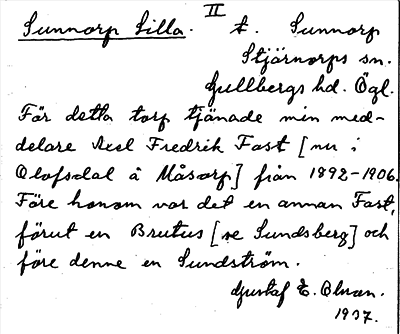 Sunnorp Lilla. II t. Sunnorp
Stjärnorps sn.
Gullbergs hd. Ögl.
För detta torp tjänade min med-
delare Axel Fredrik Fast [nu i
Olofsdal å Måsorp] från 1892-1906.
Före honom var det en annan Fast,
förut en Brutus [se Sundsberg] och
före denne en Sundström.
Gustaf E. Olman.
1937.